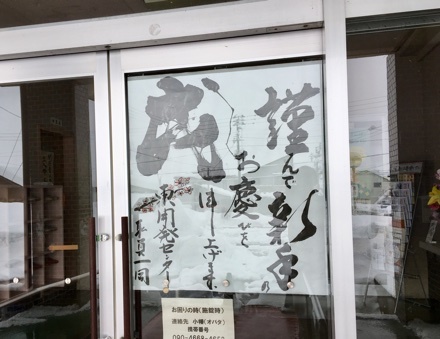 謹んで新年の
お慶びを
申し上げます
戌
開発センター
職員一同
お困りの時(施錠時)
連絡先 小幡(オバタ)
携帯番号